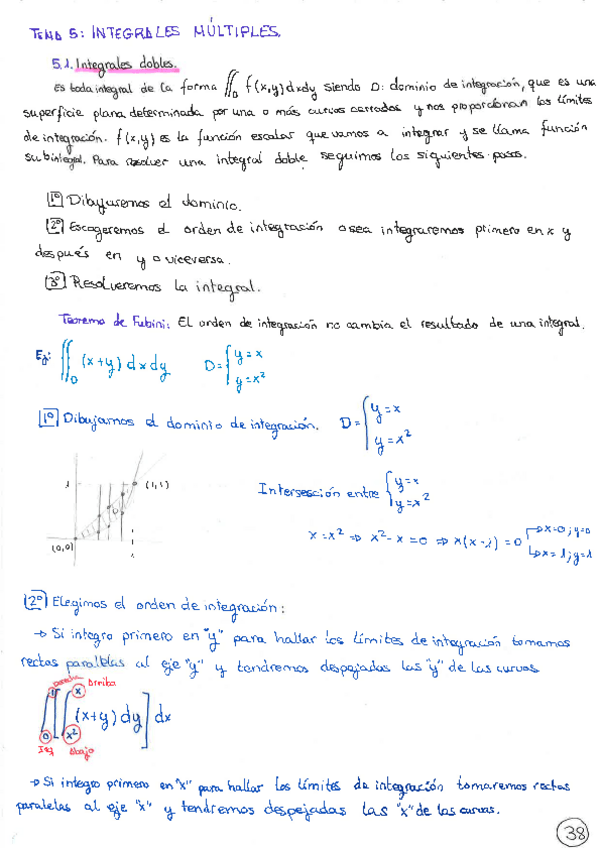 TEMA 5: INTEGRALES MÚLTIPLES.
5.1. Integrales dobles.
Es toda integral de la forma ∬_D f(x,y) dxdy siendo D: dominio de integración, que es una
superficie plana determinada por una o más curvas cerradas y nos proporcionan los límites
de integración. f(x,y) es la función escalar que vamos a integrar y se llama función
subintegral. Para resolver una integral doble seguimos los siguientes pasos.
1º Dibujaremos el dominio.
2º Escogeremos el orden de integración osea integraremos primero en x y
después en y o viceversa.
3º Resolveremos la integral.
Teorema de Fubini: El orden de integración no cambia el resultado de una integral.
Ej: ∬_D (x+y) dxdy D= { y=x
y=x²
1º Dibujamos el dominio de integración. D= { y=x
y=x²
1 (1,1)
D
(0,0) 1
Intersección entre { y=x
y=x²
x=x² => x²-x=0 => x(x-1)=0 → x=0; y=0
→ x=1; y=1
2º Elegimos el orden de integración:
→ Si integro primero en "y" para hallar los límites de integración tomamos
rectas paralelas al eje "y" y tendremos despejadas las "y" de las curvas
derecha Arriba
1 x
∫ [ ∫ (x+y) dy ] dx
0 x²
Izq Abajo
→ Si integro primero en "x" para hallar los límites de integración tomaremos rectas
paralelas al eje "x" y tendremos despejadas las "x" de las curvas.
38